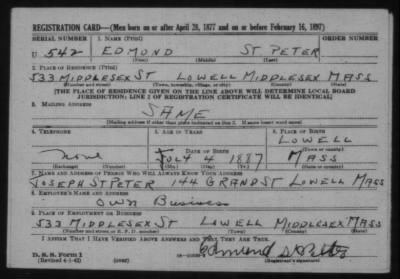 REGISTRATION CARD—(Men born on or after April 28, 1877 and on or before February 16, 1897)
SERIAL NUMBER 1. NAME (Print) ORDER NUMBER
U 542 EDMOND ST. PETER
(First) (Middle) (Last)
2. PLACE OF RESIDENCE (Print)
533 MIDDLESEX ST LOWELL MIDDLESEX MASS
(Number and street) (Town, township, village, or city) (County) (State)
[THE PLACE OF RESIDENCE GIVEN ON THE LINE ABOVE WILL DETERMINE LOCAL BOARD
JURISDICTION; LINE 2 OF REGISTRATION CERTIFICATE WILL BE IDENTICAL]
3. MAILING ADDRESS
SAME
[Mailing address if other than place indicated on line 2. If same insert word same]
4. TELEPHONE 5. AGE IN YEARS 6. PLACE OF BIRTH
LOWELL
DATE OF BIRTH (Town or county)
none JULY 4 1887 MASS
(Exchange) (Number) (Mo.) (Day) (Yr.) (State or country)
7. NAME AND ADDRESS OF PERSON WHO WILL ALWAYS KNOW YOUR ADDRESS
JOSEPH ST PETER 144 GRAND ST LOWELL MASS
8. EMPLOYER'S NAME AND ADDRESS
OWN Business
9. PLACE OF EMPLOYMENT OR BUSINESS
533 MIDDLESEX ST LOWELL MIDDLESEX MASS
(Number and street or R. F. D. number) (Town) (County) (State)
I AFFIRM THAT I HAVE VERIFIED ABOVE ANSWERS AND THAT THEY ARE TRUE.
D. S. S. Form 1 Edmond St Peter
(Revised 4-1-42) (over) (Registrant's signature)